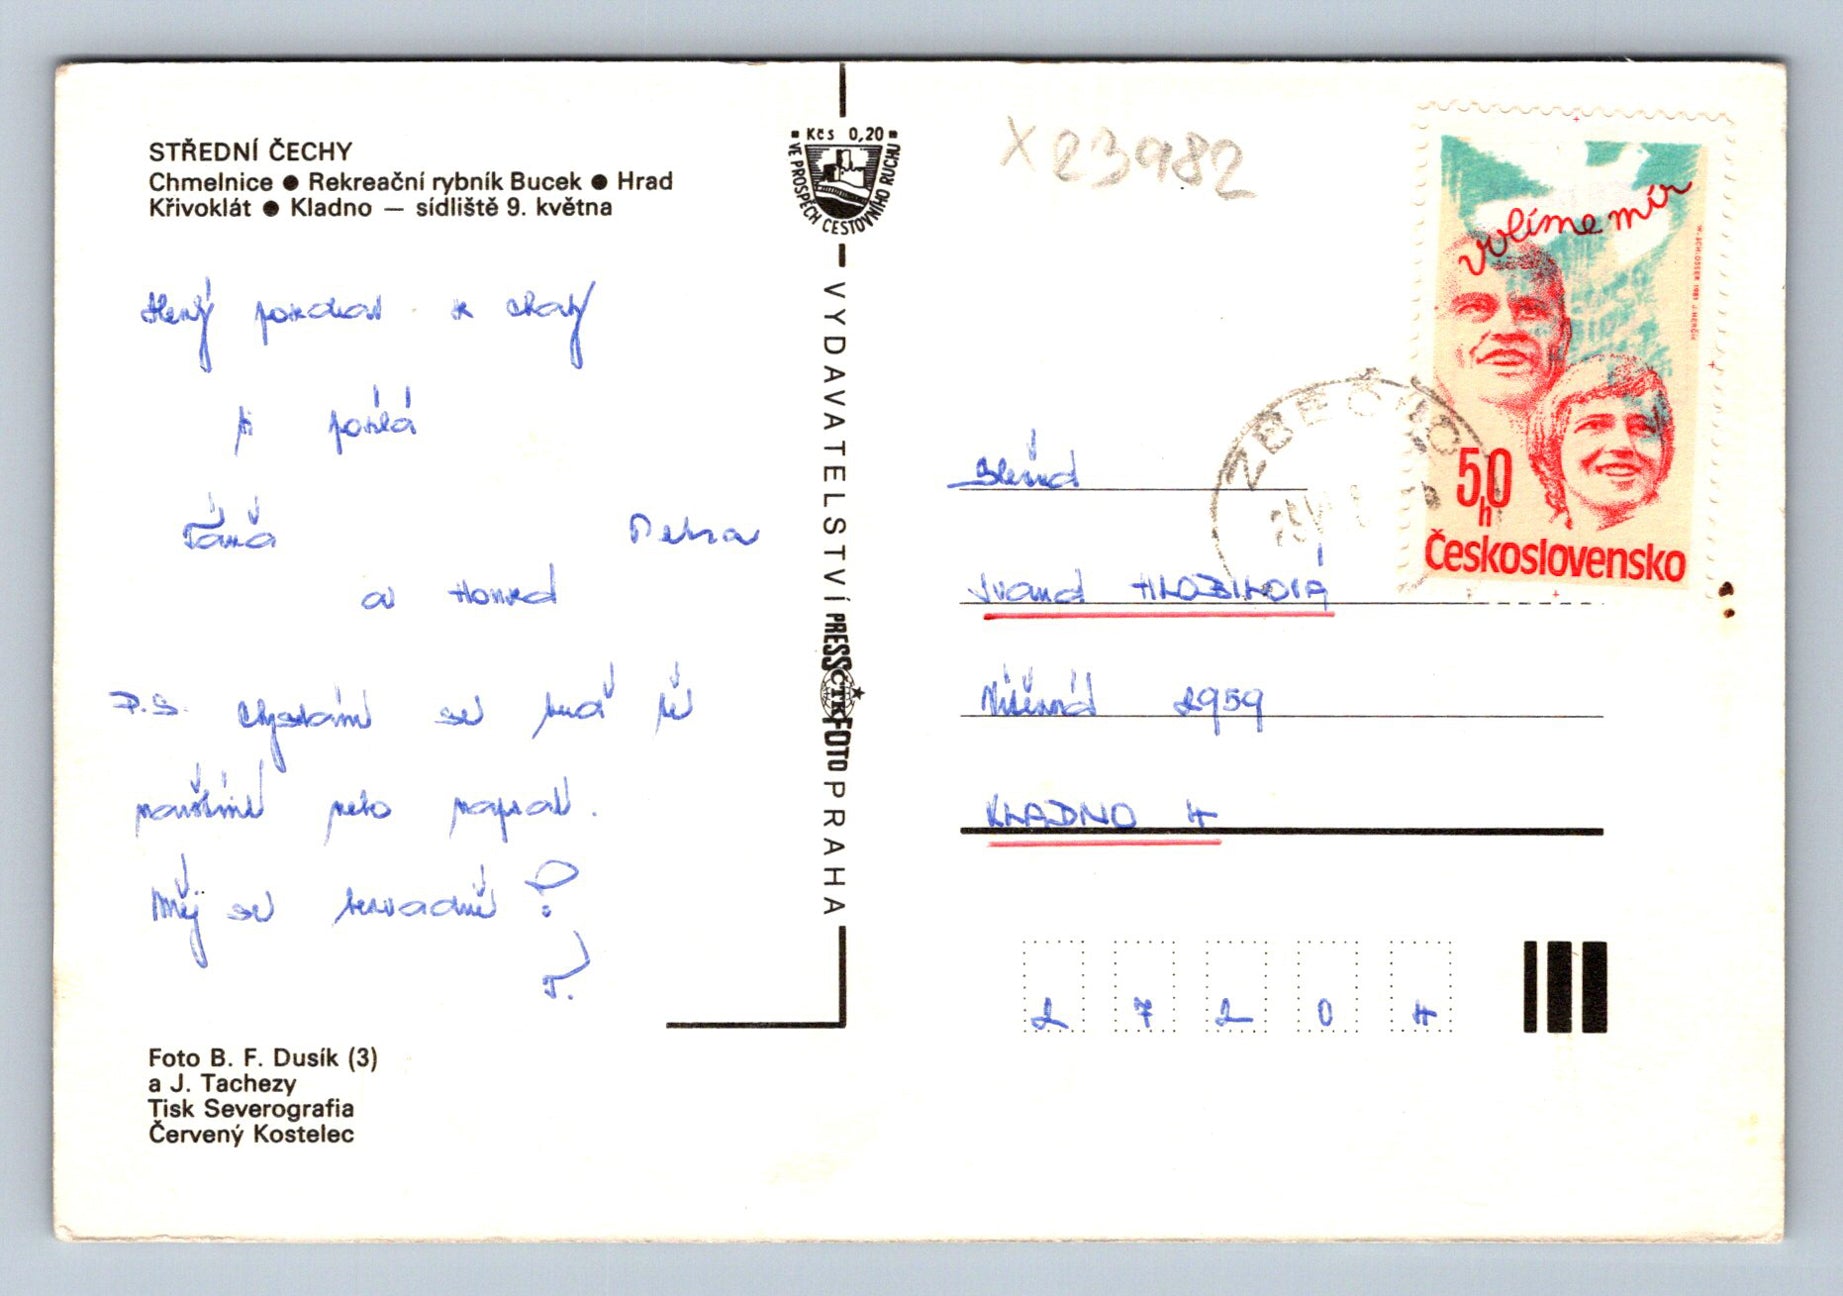 STŘEDNÍ ČECHY
Chmelnice ● Rekreační rybník Bucek ● Hrad
Křivoklát ● Kladno — sídliště 9. května
pozdrav z chaty
Ti posílá
Táňa Petra
a Honza
P.S. Chystám se buď tě
navštívit nebo napsat.
Měj se bezvadně
T.
Foto B. F. Dusík (3)
a J. Tachezy
Tisk Severografia
Červený Kostelec
Kčs 0,20
VE PROSPĚCH CESTOVNÍHO RUCHU
VYDAVATELSTVÍ PRESSFOTO PRAHA
ČTK
X 23982
volíme mír
50
h
Československo
ZBEČNO
Ivana HLOBILOVÁ
2959
KLADNO 4
2 7 2 0 4